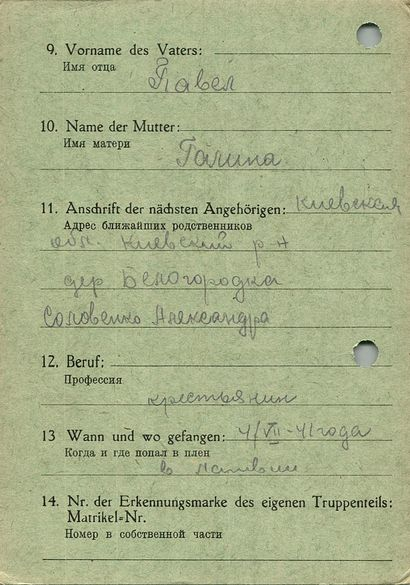 9. Vorname des Vaters:
Имя отца
Павел
10. Name der Mutter:
Имя матери
Галина
11. Anschrift der nächsten Angehörigen: Киевская
Адрес ближайших родственников
обл. Киевский р-н
дер Белогородка
Соловенко Александра
12. Beruf:
Профессия
крестьянин
13 Wann und wo gefangen: 4/VII-41 года
Когда и где попал в плен
в Латвии
14. Nr. der Erkennungsmarke des eigenen Truppenteils:
Matrikel=Nr.
Номер в собственной части